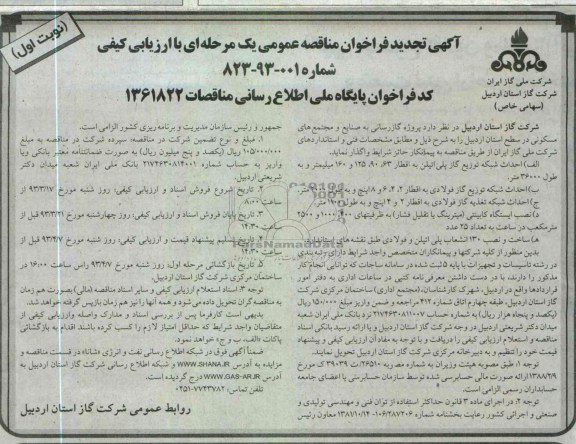 (نوبت اول)
آگهی تجدید فراخوان مناقصه عمومی یک مرحله‌ای با ارزیابی کیفی
شماره ۰۰۱-۹۳-۸۲۳
کد فراخوان پایگاه ملی اطلاع رسانی مناقصات ۱۳۶۱۸۲۲
شرکت ملی گاز ایران
شرکت گاز استان اردبیل
(سهامی خاص)
شرکت گاز استان اردبیل در نظر دارد پروژه گازرسانی به صنایع و مجتمع های
مسکونی در سطح استان اردبیل را به شرح ذیل و مطابق مشخصات فنی و استانداردهای
شرکت ملی گاز ایران از طریق مناقصه به پیمانکار حائز شرایط واگذار نماید.
الف) احداث شبکه توزیع گاز پلی اتیلن به اقطار ۶۳، ۹۰، ۱۲۵ و ۱۶۰ میلیمتر و به
طول ۳۶۰۰۰ متر.
ب) احداث شبکه توزیع گاز فولادی به اقطار ۲، ۴، ۶ و ۸ اینچ و به طول
ج) احداث شبکه تغذیه گاز فولادی به اقطار ۲ و ۴ اینچ و به طول ۱۹۰۰ متر.
د) نصب ایستگاه کابینتی (میترینگ یا تقلیل فشار) به ظرفیتهای ۴۰۰، ۱۰۰۰ و ۲۵۰۰
مترمکعب در ساعت به تعداد ۲۵ عدد
ه) ساخت و نصب ۱۳۰ انشعاب پلی اتیلن و فولادی طبق نقشه های استاندارد
بدین منظور از کلیه شرکتها و پیمانکاران متخصص واجد شرایط دارای رتبه بندی
در رشته تاسیسات و تجهیزات با پایه ۵ ثبت شده در سامانه ساجات که توانایی انجام کار
مذکور را دارند، با در دست داشتن معرفی نامه کتبی در ساعات اداری به دفتر امور
قراردادها واقع در اردبیل، شهرک کارشناسان، (مجتمع اداری) ساختمان مرکزی شرکت
گاز استان اردبیل، طبقه چهارم اتاق شماره ۴۱۲ مراجعه و ضمن واریز مبلغ ۱۵۰/۰۰۰ ریال
(یکصد و پنجاه هزار ریال) به شماره حساب ۲۱۷۴۶۳۰۸۱۱۰۰۷ نزد بانک ملی ایران شعبه
میدان دکتر شریعتی اردبیل در وجه شرکت گاز استان اردبیل و با ارائه رسید بانکی اسناد
مناقصه و استعلام ارزیابی کیفی را دریافت و با توجه به مفاد آن ارزیابی کیفی و پیشنهاد
قیمت خود را تنظیم و به دبیرخانه مرکزی شرکت گاز استان اردبیل تحویل نمایند.
توجه ۱، طبق مصوبه هیئت وزیران به شماره مصوبه ت ۳۹۰۳۹ ک مورخ
۱۳۸۸/۲/۹ ارائه صورت مالی حسابرسی شده توسط سازمان حسابرسی یا اعضای جامعه
حسابداران رسمی الزامی است.
توجه ۲، در اجرای ماده ۳ قانون حداکثر استفاده از توان فنی و مهندسی تولیدی و
صنعتی و اجرائی کشور رعایت بخشنامه شماره ۱۰۶/۲۸۷۲۰۶ - ۱۳۸۱/۱۰/۱۴ معاون رئیس
جمهور و رئیس سازمان مدیریت و برنامه ریزی کشور الزامی است.
۱. مبلغ و نوع تضمین شرکت در مناقصه، سپرده شرکت در مناقصه به مبلغ
۱۰۵/۰۰۰/۰۰۰ ریال (یکصد و پنج میلیون ریال) به صورت ضمانتنامه معتبر بانکی ویا
واریز به حساب شماره ۲۱۷۴۶۳۰۸۱۴۰۰۱ بانک ملی ایران شعبه میدان دکتر
شریعتی اردبیل
۲. تاریخ شروع فروش اسناد و ارزیابی کیفی: روز شنبه مورخ ۹۳/۳/۱۷
ساعت ۸:۰۰
۳. تاریخ پایان فروش اسناد و ارزیابی کیفی: روز چهارشنبه مورخ ۹۳/۳/۲۱ از
ساعت ۱۴:۳۰
۴. تاریخ تسلیم پیشنهاد قیمت و ارزیابی کیفی: روز شنبه مورخ ۹۳/۴/۷ از
ساعت ۱۴:۳۰
۵. تاریخ بازگشائی مرحله اول: روز شنبه مورخ ۹۳/۴/۷ راس ساعت ۱۶:۰۰ در
ساختمان مرکزی شرکت گاز استان اردبیل.
توجه ۳: اسناد استعلام ارزیابی کیفی و سایر اسناد مناقصه (مالی) بصورت هم زمان
به مناقصه گران تحویل داده می شود و همه آنها را نیز هم زمان بازپس گرفته خواهد شد.
بدیهی است کارفرما پس از بررسی اسناد و مدارک واصله وارزیابی کیفی از
متقاضیان واجد شرایط که حداقل امتیاز لازم را کسب کرده باشند اقدام به بازگشائی
پاکات «الف، ب و ج» خواهد نمود.
ضمنا آگهی فوق در شبکه اطلاع رسانی نفت و انرژی «شانا» در قسمت مناقصه و
مزایده به آدرس WWW.SHANA.IR و شبکه اطلاع رسانی شرکت گاز استان اردبیل به
آدرس WWW.GAS-AR.IR درج گردیده است.
تلفن تماس: ۷۷۴۳۷۸۲-۰۴۵۱
روابط عمومی شرکت گاز استان اردبیل